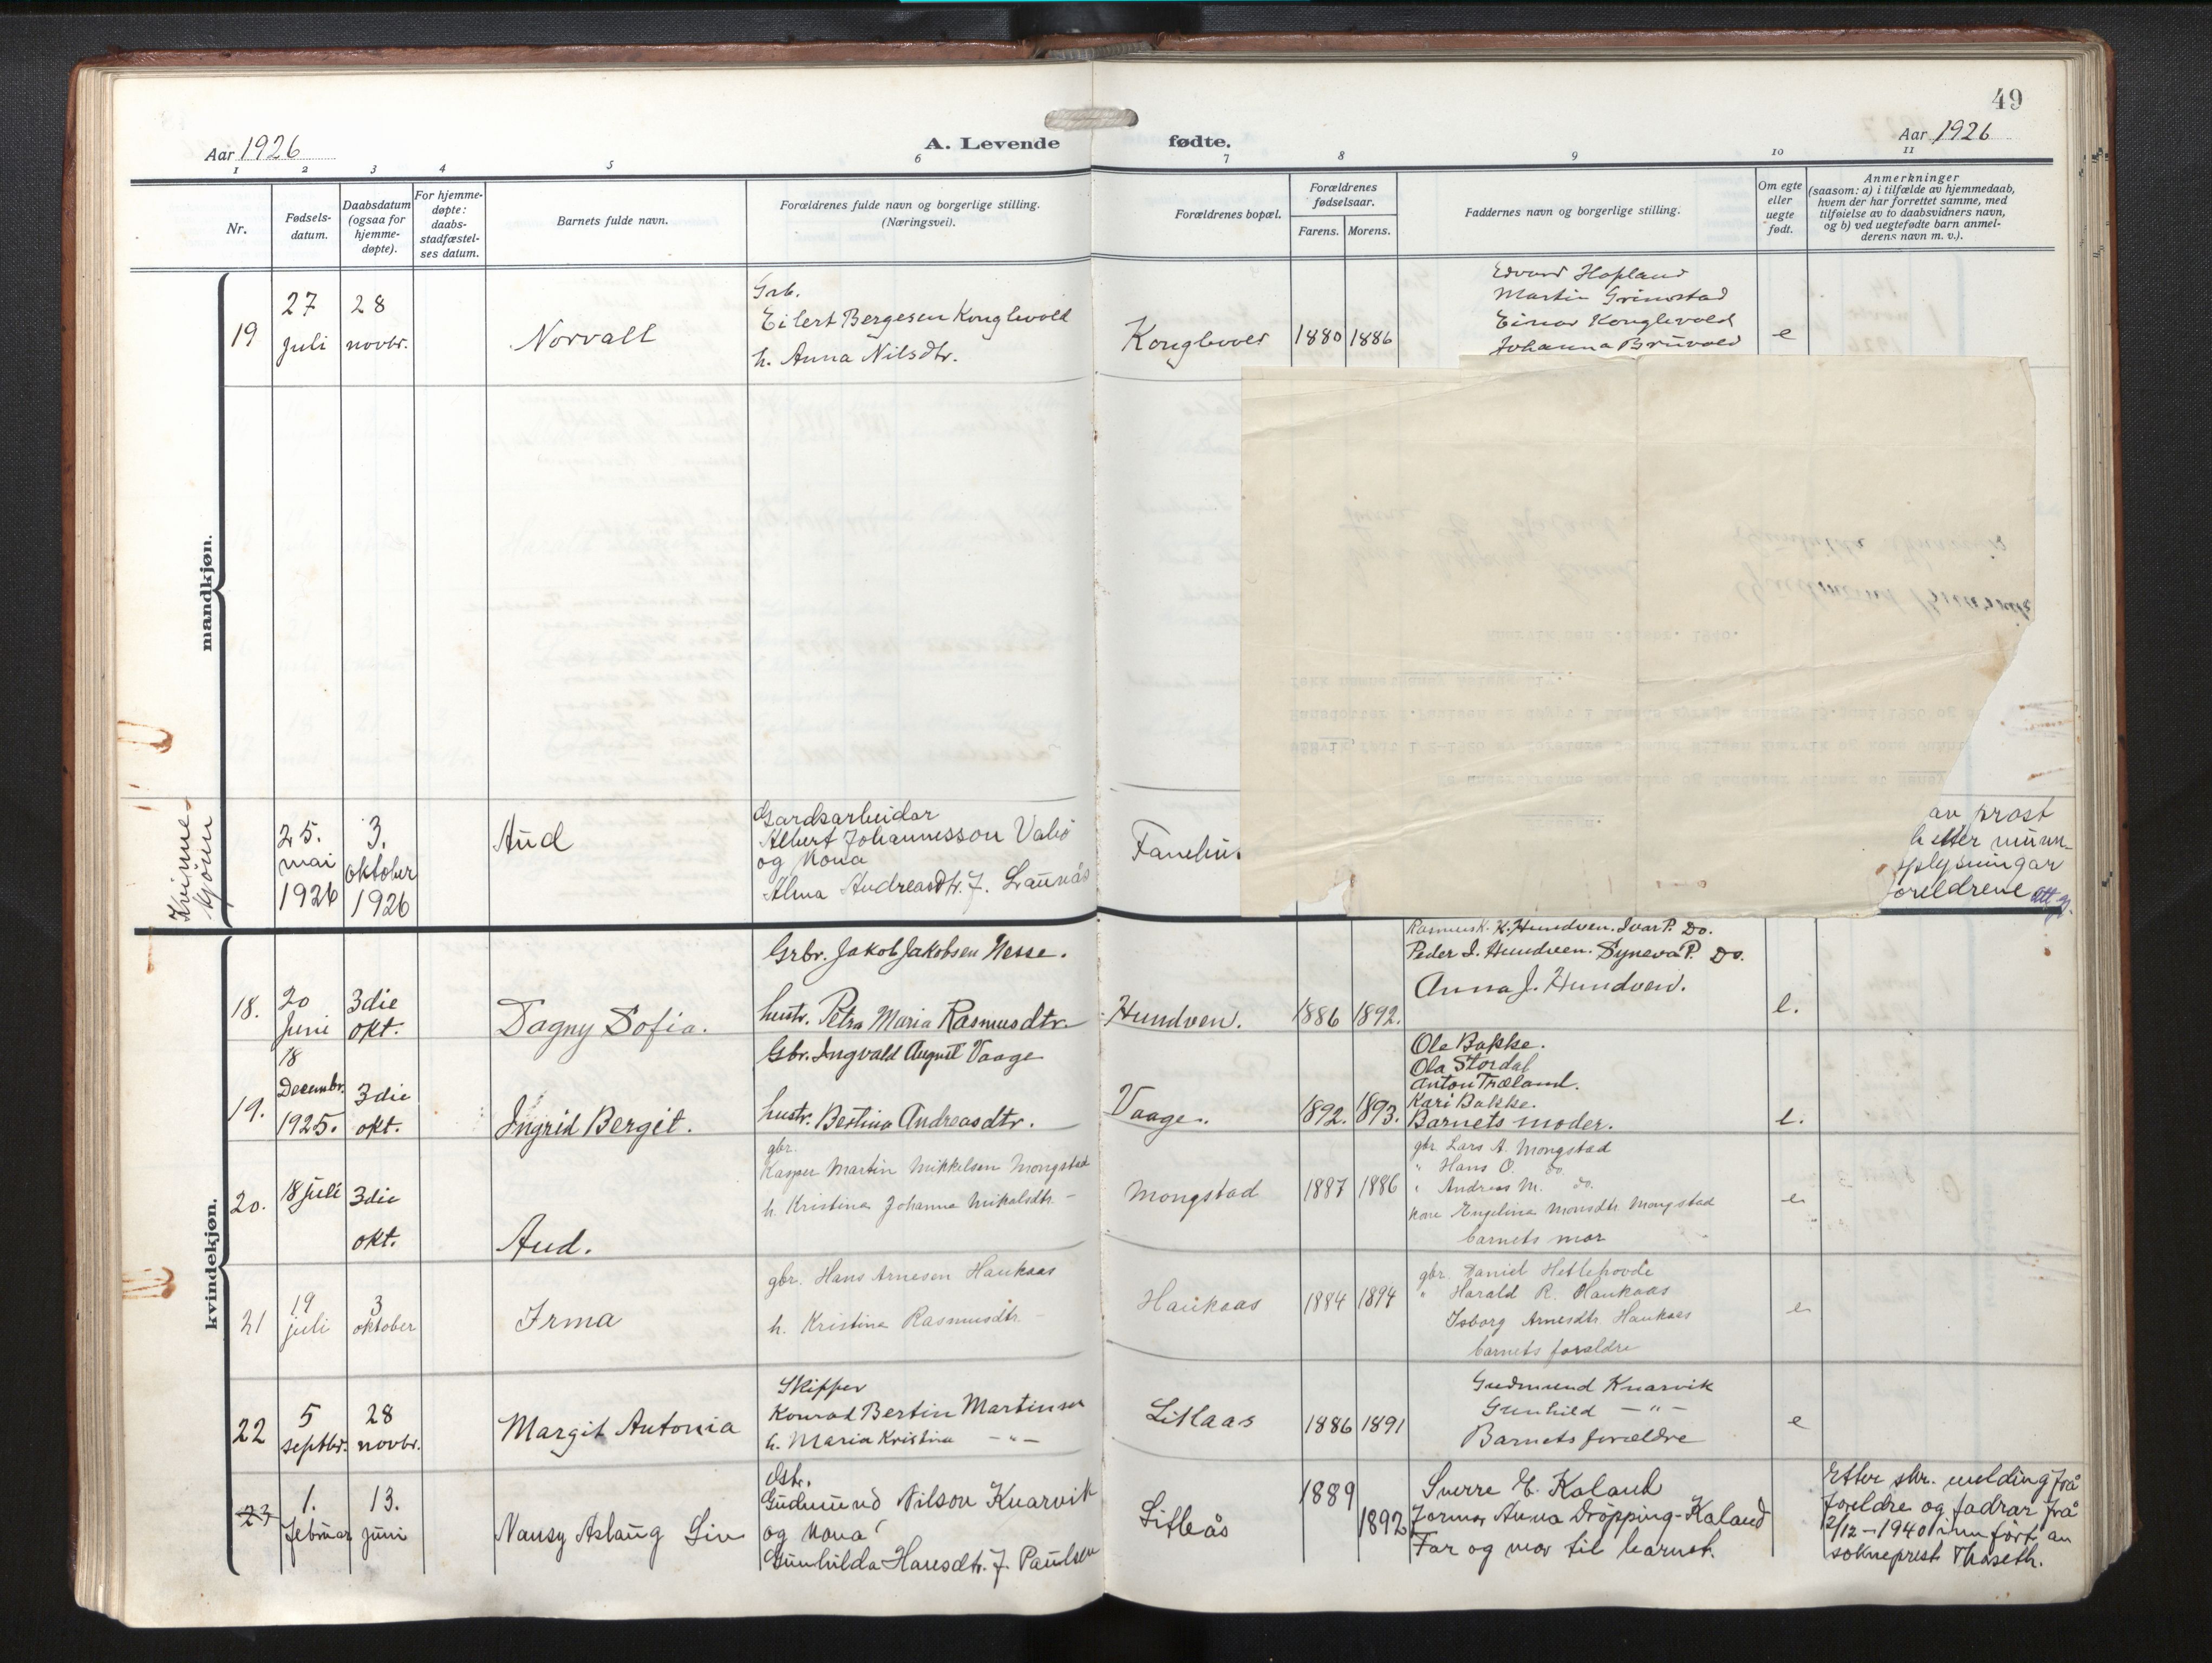 49
Aar 1926
A. Levende
fødte.
Aar 1926
1 2 3 4 5 6 7 8 9 10 11
Nr.
Fødsels-
datum.
Daabsdatum
(ogsaa for
hjemme-
døpte).
For hjemme-
døpte:
daabs-
stadfæstel-
ses datum.
Barnets fulde navn.
Forældrenes fulde navn og borgerlige stilling.
(Næringsvei).
Forældrenes bopæl.
Forældrenes
fødselsaar.
Farens. Morens.
Faddernes navn og borgerlige stilling.
Om egte
eller
uegte
født.
Anmerkninger
(saasom: a) i tilfælde av hjemmedaab,
hvem der har forrettet samme, med
tilføielse av to daabsvidners navn,
og b) ved uegtefødte barn anmel-
derens navn m. v.).
mandkjøn.
19
27
juli
28
novbr.
Norvall
Grb.
Eilert Bergesen Konglevold
h. Anna Nilsdtr.
Konglevold
1880
1886
Edvard Hopland
Martin Grimstad
Einar Konglevold
Johanna Bruvold
e
Kvinne-
kjönn
25.
mai
1926
3.
oktober
1926
Aud
Gardsarbeidar
Albert Johannesson Valø
og kona
Alma Andreasdtr. f. Launås
Fanehu
av prost
h etter munn-
pplysningar
oreldrene
kvindekjøn.
18.
20
Juni
3die
okt.
Dagny Sofia.
Grbr. Jakob Jakobsen Nesse.
hustr. Petra Maria Rasmusdtr.
Hundven.
1886
1892.
Rasmus K. K. Hundven. Ivar P. Do.
Peder I. Hundven. Syneva P. Do.
Anna J. Hundven.
e.
19.
18
Decembr.
1925.
3die
okt.
Ingrid Bergit.
Gbr. Ingvald August Vaage
hustr. Bertina Andreasdtr.
Vaage.
1892.
1893.
Ole Bakke.
Ola Stordal
Anton Træland.
Kari Bakke.
Barnets moder.
e.
20.
18 juli
3die
okt.
Aud.
gbr.
Kasper Martin Mikkelsen Mongstad
h. Kristina Johanna Mikalsdtr. -
Mongstad
1887
1886
gbr. Lars A. Mongstad
" Hans O. do.
" Andreas M. do.
kone Engelina Monsdtr. Mongstad
barnets mor
e
21
19
juli
3
oktober
Irma
gbr. Hans Arnesen Haukaas
h. Kristina Rasmusdtr. -
Haukaas
1884
1894
gbr. Daniel Hetlehovde
" Harald R. Haukaas
Isborg Arnesdtr. Haukaas
barnets forældre
e
22
5
septbr.
28
novbr.
Margit Antonia
Skipper
Konrad Bertin Martinsen
h. Maria Kristina - " -
Litlaas
1886
1891
Gudmund Knarvik
Gunhild - " -
Barnets forældre
e
23
1.
februar
13.
juni
Nansy Aslaug Liv
Gudmund Nilson Knarvik
og kona
Gunhilda Hansdtr. f. Paulsen
Litleås
1889
1892
Sverre E. Kaland
Jorma Anna Dröpping-Kaland
Far og mor til barnet.
Etter skr. melding frå
foreldre og fadrar frå
2/12-1940 innført av
sokneprest Thaseth.